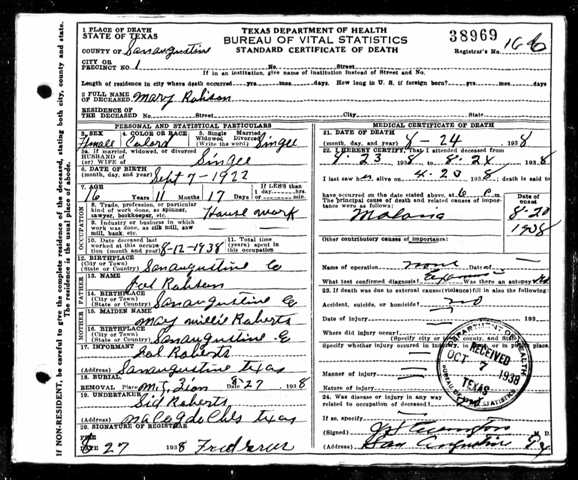 1 PLACE OF DEATH
STATE OF TEXAS
TEXAS DEPARTMENT OF HEALTH
BUREAU OF VITAL STATISTICS
STANDARD CERTIFICATE OF DEATH
38969
COUNTY OF San augustine
Registrar's No. 166
CITY OR
PRECINCT NO. 1 No. Street
If in an institution, give name of institution instead of Street and No.
Length of residence in city where death occurred yrs. mos. days. How long in U. S. if foreign born? yrs. mos. days
2 FULL NAME
OF DECEASED Mary
RESIDENCE OF
THE DECEASED No. Street City State
IF NON-RESIDENT, be careful to give the complete residence of the deceased, stating both city, county and state.
The residence is the usual place of abode.
PERSONAL AND STATISTICAL PARTICULARS
3. SEX 4. COLOR OR RACE 5. Single Married
Widowed Divorced
(Write the word)
Female Colord Singel
5a. If married, widowed, or divorced
HUSBAND OF
(or) WIFE OF Singel
6. DATE OF BIRTH
(month, day, and year) Sept 7-1922
7. AGE 16 Years 11 Months 17 Days If LESS than
1 day
hours min.
OCCUPATION
8. Trade, profession, or particular
kind of work done, as spinner,
sawyer, bookkeeper, etc. House work
9. Industry or business in which
work was done, as silk mill, saw
mill, bank, etc.
10. Date deceased last
worked at this
occupation 8-12-1938 11. Total (years)
spent in this
occupation
12. BIRTHPLACE
(City or Town)
(State or Country) San augustine Co
FATHER
13. NAME
14. BIRTHPLACE
(City or Town)
(State or Country) San augustine Co
MOTHER
15. MAIDEN NAME
Mary millie Roberts
16. BIRTHPLACE
(City or Town)
(State or Country) San augustine
17. INFORMANT
Roberts
(Address) San augustine texas
18. BURIAL
REMOVAL Place Mt, Zion 8-27 1938
19. UNDERTAKER
Sid Roberts
(Address) texas
20. SIGNATURE OF REGISTRAR
27 1938 Fred
MEDICAL CERTIFICATE OF DEATH
21. DATE OF DEATH
(month, day, and year) 24 1938
22. I HEREBY CERTIFY, That I attended deceased
from 23 1938 to 8-24 1938
I last saw h alive on 23 1938 death is said to
have occurred on the date stated above, at 6 m.
The principal cause of death and related causes of importance were as follows:
Date of
onset
8-20
1938
Other contributory causes of importance:
Name of operation none Date of
What test confirmed diagnosis? Was there an autopsy?
23. If death was due to external causes (violence) fill in also the following
Accident, suicide, or homicide? no
Date of injury 193
Where did injury occur?
(Specify city or county, and State)
Specify whether injury occurred in
Manner of injury
Nature of injury
24. Was disease or injury in any way
related to occupation of deceased?
If so, specify
(Signed) M. D.
(Address) San Augustine
RECEIVED
OCT 7 1938
TEXAS